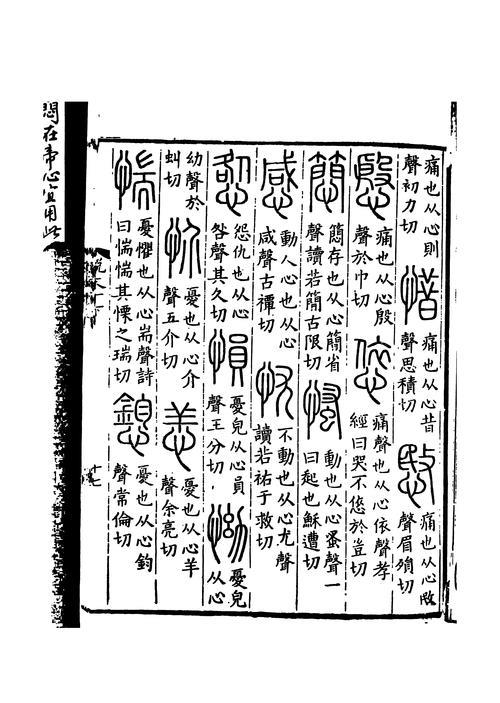 痛也从心則聲初力切 惜 痛也从心昔聲思積切 愍 痛也从心敃聲眉殞切
慇 痛也从心殷聲於巾切 㥋 痛聲也从心依聲孝經曰哭不㥋於豈切
簡存也从心簡省聲讀若簡古限切 慅 動也从心蚤聲一曰起也穌遭切
感 動人心也从心咸聲古禫切 忧 不動也从心尤聲讀若祐于救切
怨仇也从心咎聲其久切 愪 憂皃从心員聲王分切 怮 憂皃从心
幼聲於虯切 忦 憂也从心介聲五介切 恙 憂也从心羊聲余亮切
惴 憂懼也从心耑聲詩曰惴惴其慄之瑞切 憌 憂也从心鈞聲常倫切
在帝心宜用此